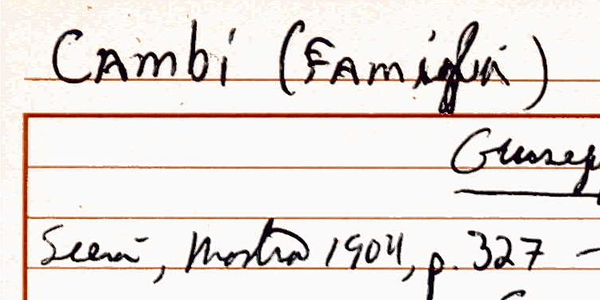 CAmbi (FAmiglia)
Giusep
Siena, Mostra 1904, p. 327 –